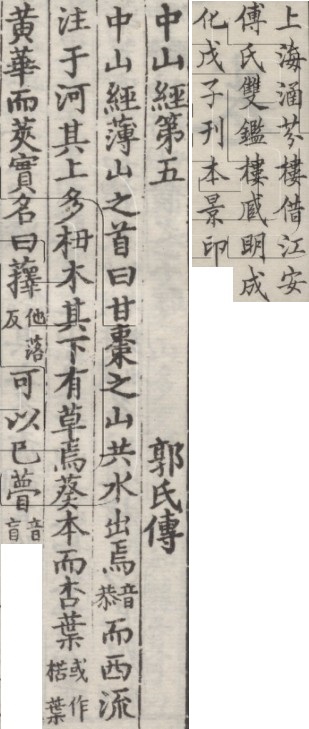 上海涵芬樓借江安
傅氏雙鑑樓臧明成
化戊子刊本景印
中山經第五 郭氏傳
中山經薄山之首曰甘棗之山共水出焉音恭而西流
注于河其上多杻木其下有草焉葵本而杏葉或作楛葉
黃華而莢實名曰蘀他落反可以已瞢音盲